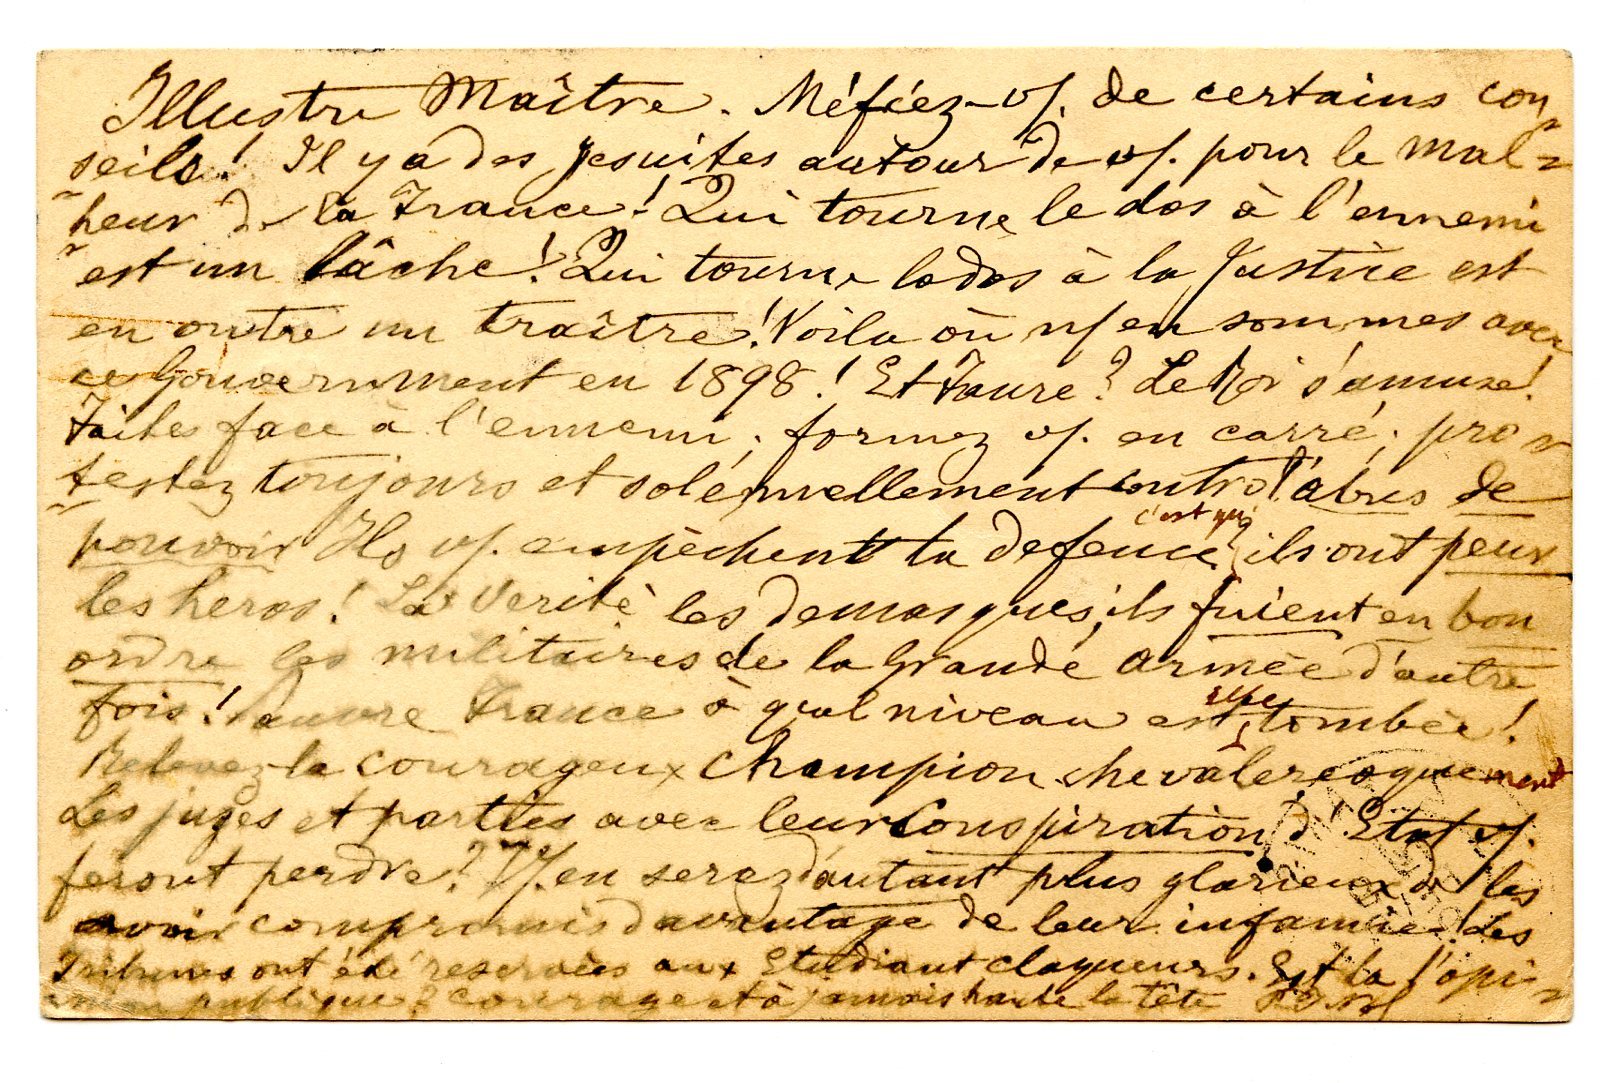 Illustre Maître. Méfiez-vs. de certains con
seils! Il y a des Jesuites autour de vs. pour le mal=
heur de la France! Qui tourne le dos à l'ennemi
est un lâche! Qui tourne le dos à la Justice est
en outre un traître! Voilà où ns en sommes avec
ce Gouvernement en 1898! Et Faure? Le Roi s'amuse!
Faites face à l'ennemi, formez vs. en carré, pro=
testez toujours et solémnellement contre l'abus de
pouvoir Ils vs. empèchent la defence, c'est qu' ils ont peur
les heros! La Verité les demasques, ils fuient en bon
ordre les militaires de la Grande Armée d'autre
fois! Pauvre France à quel niveau est elle tombée!
Relevez-la courageux champion chevaleresquement
Les juges et parties avec leur Conspiration d'Etat vs.
feront perdre? Vs. en serez d'autant plus glorieux de les
avoir compromis davantage de leur infamie! Les
Tribunes ont été reservées aux Etudiant claqueurs. Est la l'opi=
nion publique? courage et à jamais haute la tête